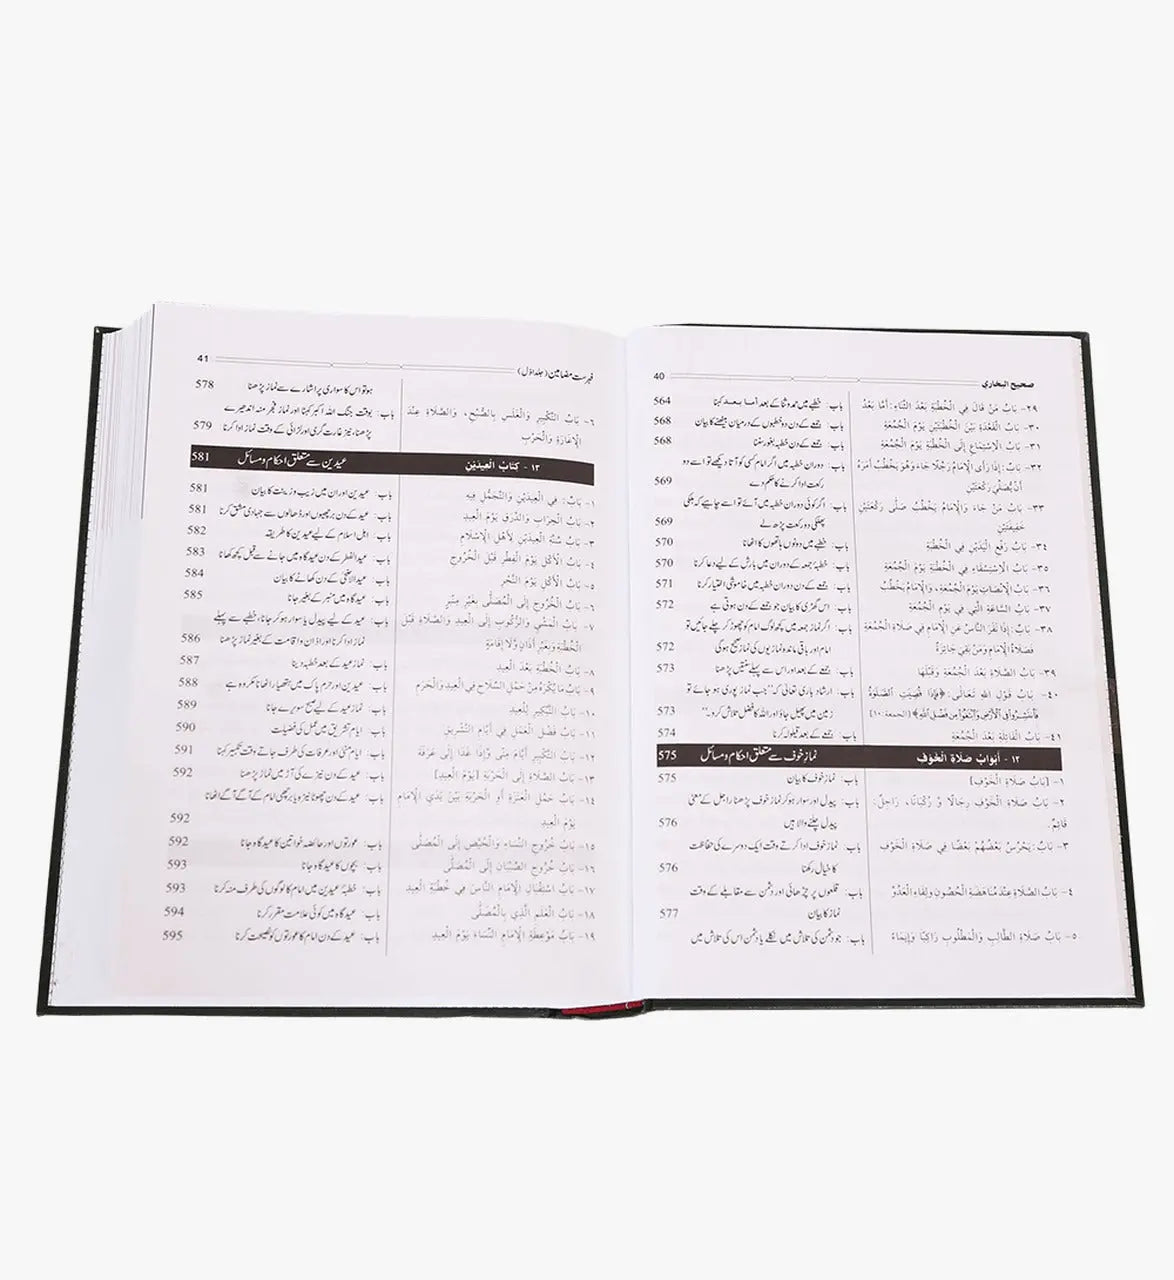 صحيح البخاري 40
٢٩- بَابُ مَنْ قَالَ فِي الْخُطْبَةِ بَعْدَ الثَّنَاءِ: أَمَّا بَعْدُ باب: خطبے میں حمد و ثنا کے بعد اما بعد کہنا 564
٣٠- بَابُ الْقَعْدَةِ بَيْنَ الْخُطْبَتَيْنِ يَوْمَ الْجُمُعَةِ باب: جمعے کے دن دو خطبوں کے درمیان بیٹھنے کا بیان 568
٣١- بَابُ الْاِسْتِمَاعِ إِلَى الْخُطْبَةِ يَوْمَ الْجُمُعَةِ باب: جمعے کے دن خطبہ بغور سننا 568
٣٢- بَابٌ: إِذَا رَأَى الْإِمَامُ رَجُلًا جَاءَ وَهُوَ يَخْطُبُ أَمَرَهُ باب: دوران خطبہ میں اگر امام کسی کو آتا دیکھے تو اسے دو
أَنْ يُصَلِّيَ رَكْعَتَيْنِ رکعت ادا کرنے کا حکم دے 569
٣٣- بَابُ مَنْ جَاءَ وَالْإِمَامُ يَخْطُبُ صَلَّى رَكْعَتَيْنِ باب: اگر کوئی دوران خطبہ میں آئے تو اسے چاہیے کہ ہلکی
خَفِيفَتَيْنِ پھلکی دو رکعت پڑھ لے 569
٣٤- بَابُ رَفْعِ الْيَدَيْنِ فِي الْخُطْبَةِ باب: خطبے میں دونوں ہاتھوں کا اٹھانا 570
٣٥- بَابُ الْاِسْتِسْقَاءِ فِي الْخُطْبَةِ يَوْمَ الْجُمُعَةِ باب: خطبۂ جمعہ کے دوران میں بارش کے لیے دعا کرنا 570
٣٦- بَابُ الْإِنْصَاتِ يَوْمَ الْجُمُعَةِ، وَالْإِمَامُ يَخْطُبُ باب: جمعے کے دن دوران خطبہ میں خاموشی اختیار کرنا 571
٣٧- بَابُ السَّاعَةِ الَّتِي فِي يَوْمِ الْجُمُعَةِ باب: اس گھڑی کا بیان جو جمعے کے دن ہوتی ہے 572
٣٨- بَابٌ: إِذَا نَفَرَ النَّاسُ عَنِ الْإِمَامِ فِي صَلَاةِ الْجُمُعَةِ باب: اگر نماز جمعہ میں کچھ لوگ امام کو چھوڑ کر چلے جائیں تو
فَصَلَاةُ الْإِمَامِ وَمَنْ بَقِيَ جَائِزَةٌ امام اور باقی ماندہ نمازیوں کی نماز صحیح ہوگی 572
٣٩- بَابُ الصَّلَاةِ بَعْدَ الْجُمُعَةِ وَقَبْلَهَا باب: جمعے کے بعد اور اس سے پہلے سنتیں پڑھنا 573
٤٠- بَابُ قَوْلِ اللهِ تَعَالَى: ﴿فَإِذَا قُضِيَتِ الصَّلَوٰةُ باب: ارشاد باری تعالیٰ کہ ''جب نماز پوری ہو جائے تو
فَانتَشِرُوا فِي الْأَرْضِ وَابْتَغُوا مِن فَضْلِ اللَّهِ﴾ [الجمعة:١٠] زمین میں پھیل جاؤ اور اللہ کا فضل تلاش کرو۔'' 573
٤١- بَابُ الْقَائِلَةِ بَعْدَ الْجُمُعَةِ باب: جمعے کے بعد قیلولہ کرنا 574
١٢- أَبْوَابُ صَلَاةِ الْخَوْفِ نماز خوف سے متعلق احکام و مسائل 575
١- [بَابُ صَلَاةِ الْخَوْفِ] باب: نماز خوف کا بیان 575
٢- بَابُ صَلَاةِ الْخَوْفِ رِجَالًا وَ رُكْبَانًا، رَاجِلٌ: باب: پیدل اور سوار ہو کر نماز خوف پڑھنا راجل کے معنی
قَائِمٌ. پیدل چلنے والا ہیں 576
٣- بَابٌ: يَحْرُسُ بَعْضُهُمْ بَعْضًا فِي صَلَاةِ الْخَوْفِ باب: نماز خوف ادا کرتے وقت ایک دوسرے کی حفاظت
کا خیال رکھنا 576
٤- بَابُ الصَّلَاةِ عِنْدَ مُنَاهَضَةِ الْحُصُونِ وَلِقَاءِ الْعَدُوِّ باب: قلعوں پر چڑھائی اور دشمن سے مقابلے کے وقت
نماز کا بیان 577
٥- بَابُ صَلَاةِ الطَّالِبِ وَالْمَطْلُوبِ رَاكِبًا وَإِيمَاءً باب: جو دشمن کی تلاش میں نکلے یا دشمن اس کی تلاش میں
فہرست مضامین (جلد اول) 41
ہو تو اس کا سواری پر اشارے سے نماز پڑھنا 578
٦- بَابُ التَّكْبِيرِ وَالْغَلَسِ بِالصُّبْحِ، وَالصَّلَاةِ عِنْدَ باب: بوقت جنگ اللہ اکبر کہنا اور نماز فجر منہ اندھیرے
الْإِغَارَةِ وَالْحَرْبِ پڑھنا، نیز غارت گری اور لڑائی کے وقت نماز ادا کرنا 579
١٣- كِتَابُ الْعِيدَيْنِ عیدین سے متعلق احکام و مسائل 581
١- بَابٌ: فِي الْعِيدَيْنِ وَالتَّجَمُّلِ فِيهِ باب: عیدین اور ان میں زیب و زینت کا بیان 581
٢- بَابُ الْحِرَابِ وَالدَّرَقِ يَوْمَ الْعِيدِ باب: عید کے دن برچھیوں اور ڈھالوں سے جہادی مشق کرنا 581
٣- بَابُ سُنَّةِ الْعِيدَيْنِ لِأَهْلِ الْإِسْلَامِ باب: اہل اسلام کے لیے عیدین کا طریقہ 582
٤- بَابُ الْأَكْلِ يَوْمَ الْفِطْرِ قَبْلَ الْخُرُوجِ باب: عید الفطر کے دن عید گاہ میں جانے سے قبل کچھ کھانا 583
٥- بَابُ الْأَكْلِ يَوْمَ النَّحْرِ باب: عید الاضحیٰ کے دن کھانے کا بیان 584
٦- بَابُ الْخُرُوجِ إِلَى الْمُصَلَّى بِغَيْرِ مِنْبَرٍ باب: عید گاہ میں منبر کے بغیر جانا 585
٧- بَابُ الْمَشْيِ وَالرُّكُوبِ إِلَى الْعِيدِ وَالصَّلَاةِ قَبْلَ باب: عید کے لیے پیدل یا سوار ہو کر جانا، خطبے سے پہلے
الْخُطْبَةِ وَبِغَيْرِ أَذَانٍ وَلَا إِقَامَةٍ نماز ادا کرنا اور اذان و اقامت کے بغیر نماز پڑھنا 586
٨- بَابُ الْخُطْبَةِ بَعْدَ الْعِيدِ باب: نماز عید کے بعد خطبہ دینا 587
٩- بَابُ مَا يُكْرَهُ مِنْ حَمْلِ السِّلَاحِ فِي الْعِيدِ وَالْحَرَمِ باب: عیدین اور حرم پاک میں ہتھیار اٹھانا مکروہ ہے 588
١٠- بَابُ التَّبْكِيرِ لِلْعِيدِ باب: نماز عید کے لیے صبح سویرے جانا 589
١١- بَابُ فَضْلِ الْعَمَلِ فِي أَيَّامِ التَّشْرِيقِ باب: ایام تشریق میں عمل کی فضیلت 590
١٢- بَابُ التَّكْبِيرِ أَيَّامَ مِنًى وَإِذَا غَدَا إِلَى عَرَفَةَ باب: ایام منیٰ اور عرفات کی طرف جاتے وقت تکبیر کہنا 591
١٣- بَابُ الصَّلَاةِ إِلَى الْحَرْبَةِ [يَوْمَ الْعِيدِ] باب: عید کے دن نیزے کی آڑ میں نماز پڑھنا 592
١٤- بَابُ حَمْلِ الْعَنَزَةِ أَوِ الْحَرْبَةِ بَيْنَ يَدَيِ الْإِمَامِ باب: عید کے دن چھوٹا نیزہ یا برچھی امام کے آگے آگے اٹھانا
يَوْمَ الْعِيدِ 592
١٥- بَابُ خُرُوجِ النِّسَاءِ وَالْحُيَّضِ إِلَى الْمُصَلَّى باب: عورتوں اور حائضہ خواتین کا عید گاہ جانا 592
١٦- بَابُ خُرُوجِ الصِّبْيَانِ إِلَى الْمُصَلَّى باب: بچوں کا عید گاہ جانا 593
١٧- بَابُ اسْتِقْبَالِ الْإِمَامِ النَّاسَ فِي خُطْبَةِ الْعِيدِ باب: خطبۂ عیدین میں امام کا لوگوں کی طرف منہ کرنا 593
١٨- بَابُ الْعَلَمِ الَّذِي بِالْمُصَلَّى باب: عید گاہ میں کوئی علامت مقرر کرنا 594
١٩- بَابُ مَوْعِظَةِ الْإِمَامِ النِّسَاءَ يَوْمَ الْعِيدِ باب: عید کے دن امام کا عورتوں کو نصیحت کرنا 595